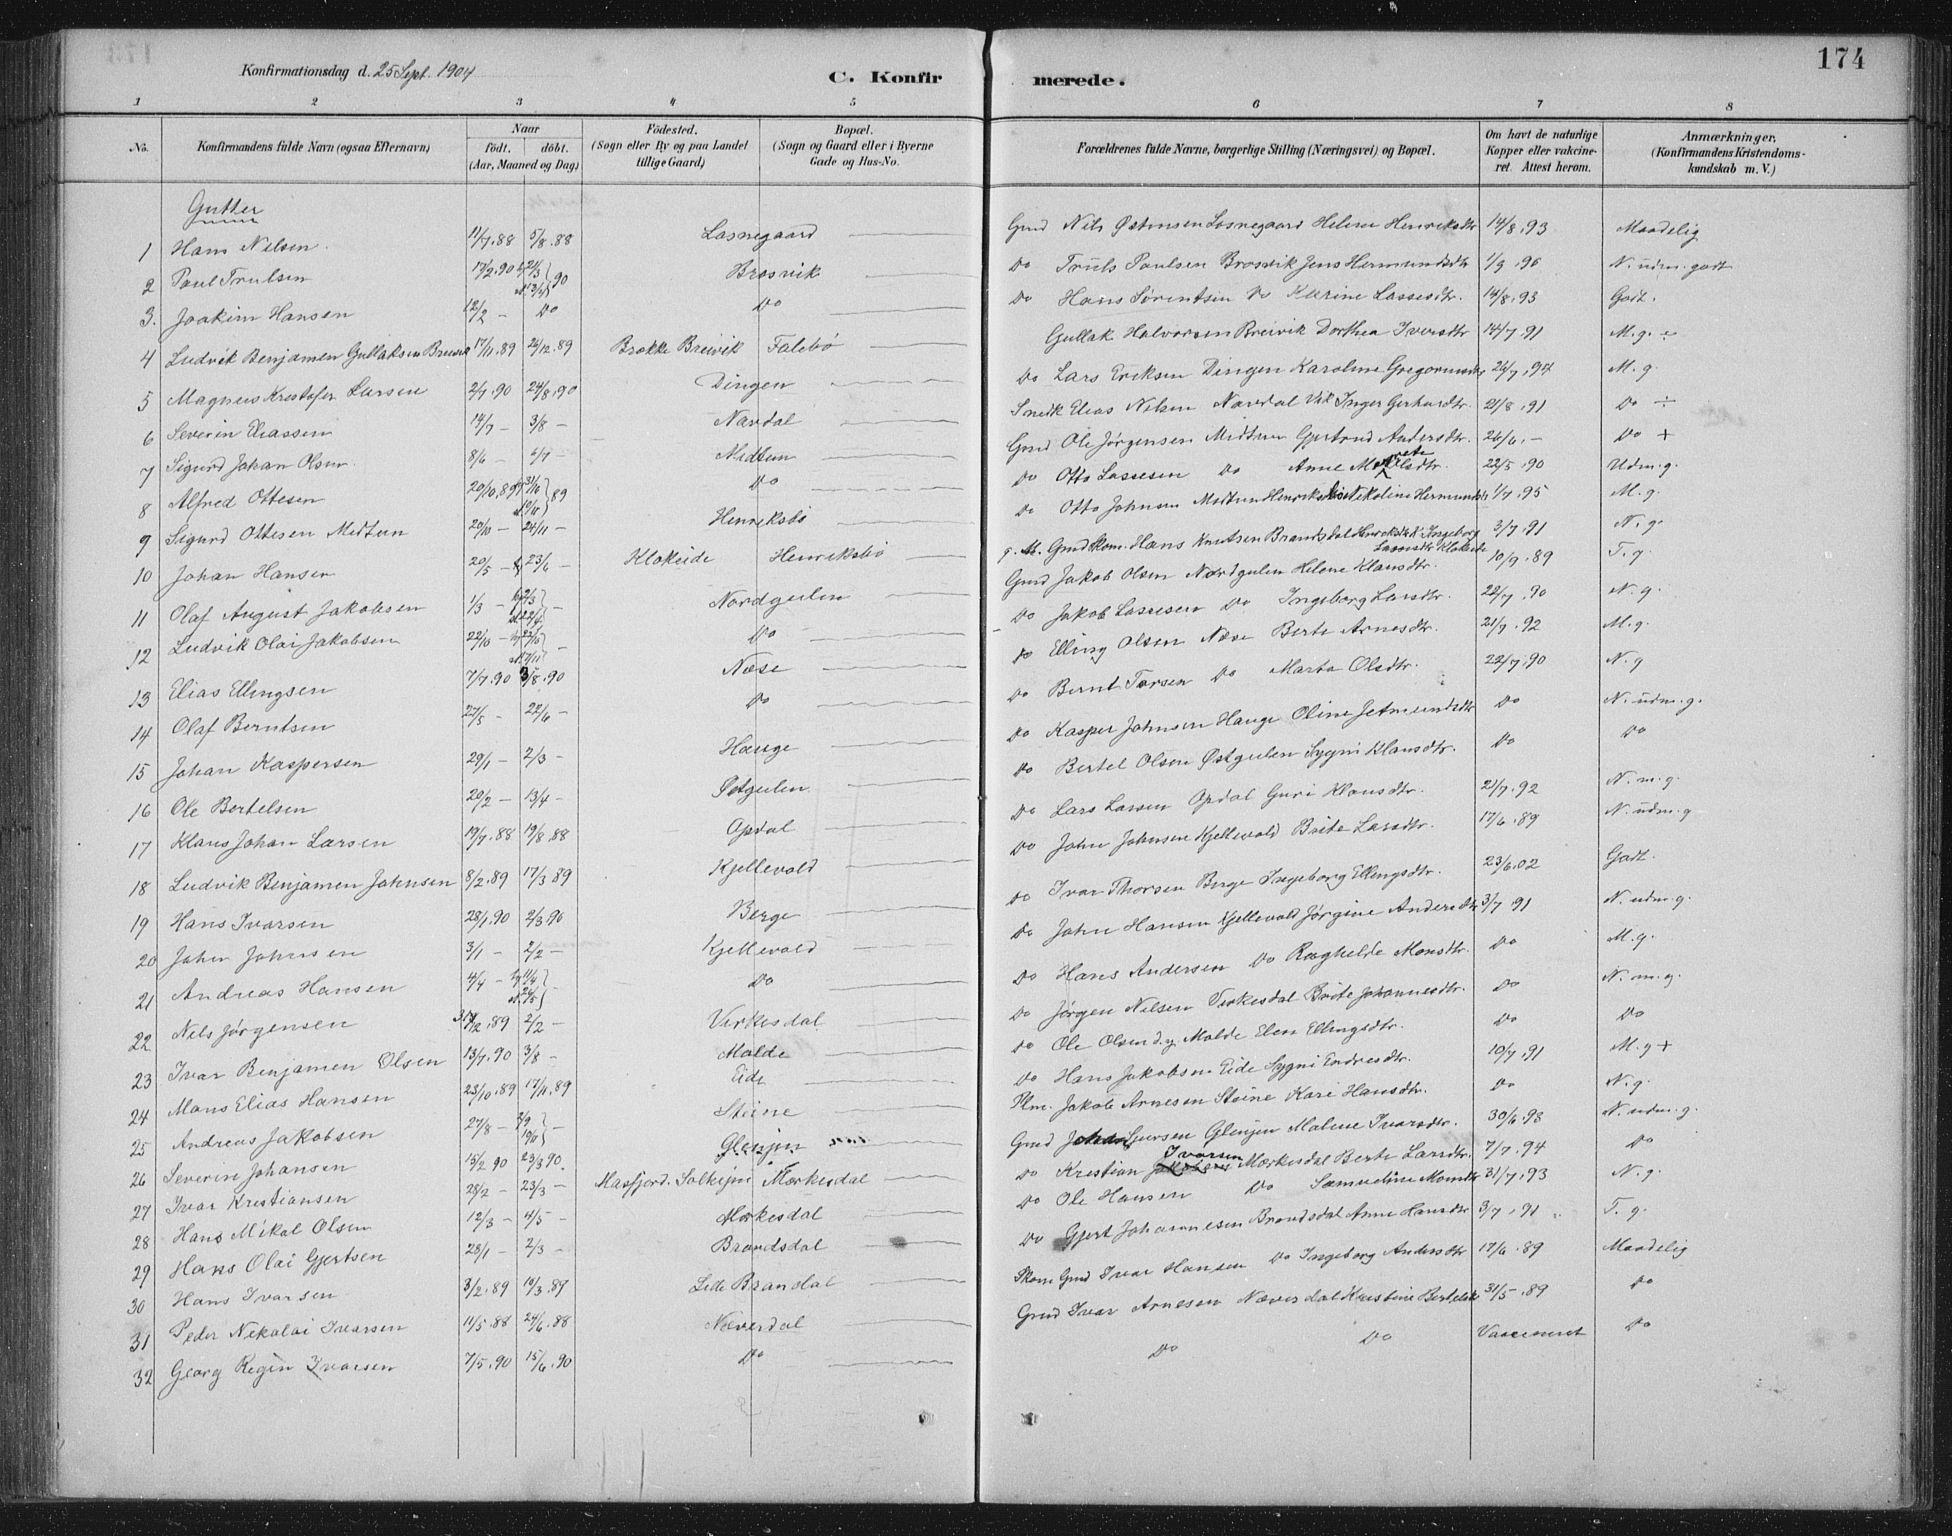 174
Konfirmationsdag d. 25 Sept. 1904
C. Konfirmerede.
1 2 3 4 5 6 7 8
No. Konfirmandens fulde Navn (ogsaa Efternavn) Naar født. døbt. (Aar, Maaned og Dag) Fødested. (Sogn eller By og paa Landet tillige Gaard) Bopæl. (Sogn og Gaard eller i Byerne Gade og Hus-No. Forældrenes fulde Navne, borgerlige Stilling (Næringsvei) og Bopæl. Om havt de naturlige Kopper eller vakcineret. Attest herom. Anmærkninger, (Konfirmandens Kristendomskundskab m. V.)
Gutter
1 Hans Nilsen 11/7.88 5/8.88 Losnegaard Gmd Nils Østensen Losnegaard Helene Henriksdtr 14/8.93 Maadelig
2 Paul Trulsen 17/2.90 Brosvik Do Truls Paulsen Brosvik Jens Hermundsdtr 1/9.96 N. udm. godt
3. Joakim Hansen 12/2 - Do Do Do Hans Sørentsen Do Karine Lassesdtr. 14/8.93 Godt.
4 Ludvik Benjamen Gullaksen Breivik 17/11.89 26/12.89 Brekke Breivik Falebø Gullak Halvorsen Breivik Dorthea Iversdtr 14/7.91 M.g. ÷
5 Magnus Kristofer Larsen 2/7.90 24/8.90 Dingen Do Lars Eriksen Dingen Karoline Gregoriusdtr 24/7.94 M.g.
6 Severin Eliassen 14/7 - 3/8 - Navdal Smedk Elias Nilsen Navdal Vik Inger Gerhardtr. 21/8.91 Do ÷
7 Sigurd Johan Olsen 8/6 - 6/7 - Midtun Gmd Ole Jørgensen Midtun Gjertrud Andersdtr. 26/6.- Do +
8 Alfred Ottesen 20/10.89 Do Do Otto Lassesen Do Anne Marete Olsdtr. 22/5.90 Udm.g.
9 Sigurd Ottesen Midtun 20/10 - 24/11 - Henriksbø Do Otto Johnsen Midtun Henriksbø Nikoline Hermundsdtr 1/7.95 M.g.
10 Johan Hansen 20/5 - 23/6 - Klakeide Henriksbø g. M. Gmd Hans Knutsen Brandsdal Ingeborg Lassesdtr Klakeide 3/7.91 N.g.
11 Olaf August Jakobsen 1/3 - Nordgulen Gmd Jakob Olsen Nordgulen Helene Klausdtr. 10/9.89 T.g.
12 Ludvik Olai Jakobsen 22/10 - Do Do Jakob Lassesen Do Ingeborg Larsdtr. 22/7.90 N.g.
13 Elias Ellingsen 7/7.90 3/8.90 Næse Do Elling Olsen Næse Berte Arnesdtr. 21/7.92 M.g.
14 Olaf Berntsen 27/5 - 22/6 - Do Do Bernt Torsen Do Marta Olsdtr. 22/7.90 N.g
15 Johan Kaspersen 29/1 - 2/3 - Hauge Do Kasper Johnsen Hauge Oline Jetmundsdtr Do N. udm.g.
16 Ole Bertelsen 20/2 - 13/4 - Østgulen Do Bertel Olsen Østgulen Sygni Klausdtr. Do Do
17 Klaus Johan Larsen 19/7.88 19/8.88 Opdal Do Lars Larsen Opdal Guri Klausdtr. 21/7.92 N.m.g.
18 Ludvik Benjamen Johnsen 8/2.89 17/3 89 Kjellevold Do John Johnsen Kjellevold Brite Larsdtr. 17/6.89 N. udm.g
19 Hans Ivarsen 28/1.90 2/3.90 Berge Do Ivar Thorsen Berge Ingeborg Ellingsdtr. 23/6.02 Godt.
20 John Johnsen 3/1 - 2/2 - Kjellevold Do John Hansen Kjellevold Jørgine Andersdtr 3/7.91 N. udm.g.
21 Andreas Hansen 4/4 - Do Do Hans Andersen Do Raghilde Monsdtr. Do M.g.
22 Nils Jørgensen 2/2 - Virkesdal Do Jørgen Nilsen Virkesdal Brite Johannesdtr. Do N.m.g.
23 Ivar Benjamen Olsen 13/7.90 3/8 - Molde Do Ole Olsen d.y. Molde Elen Ellingsdtr. Do Do
24 Mons Elias Hansen 23/10.89 17/11.89 Eide Do Hans Jakobsen Eide Sygni Endresdtr. 10/7.91 M.g +
25 Andreas Jakobsen 27/8 - Steine Plm. Jakob Arnesen Steine Kari Hansdtr. Do N.g.
26 Severin Johansen 15/2 90 23/3 90. Glenjen Gmd Johan Sjursen Glenjen Malene Ivarsdtr. 30/6.98 N. udm.g.
27 Ivar Kristiansen 28/2 - 23/3 - Masfjord. Solheim Mørkesdal Do Kristian Ivarsen Mørkesdal Berte Larsdtr. 7/7.94 Do
28 Hans Mikal Olsen 12/3 - 4/5 - Mørkesdal Do Ole Hansen Do Samueline Monsdtr 31/7.93 N.g.
29 Hans Olai Gjertsen 28/1 - 2/3 - Brandsdal Do Gjert Johannesen Brandsdal Anne Hansdtr 3/7.91 T.g.
30 Hans Ivarsen 3/2.89 10/3.89 Lide Brandal Gmd Ivar Hansen Do Ingeborg Andersdtr 17/6.89 Maadelig
31 Peder Nikolai Ivarsen 11/5.88 24/6.88 Næverdal Gmd Ivar Arnesen Næverdal Kristine Bertelsdtr 31/5.89 Do
32 Georg Regin Ivarsen 7/5.90 15/6.90 Do Do Do Vaccineret Do